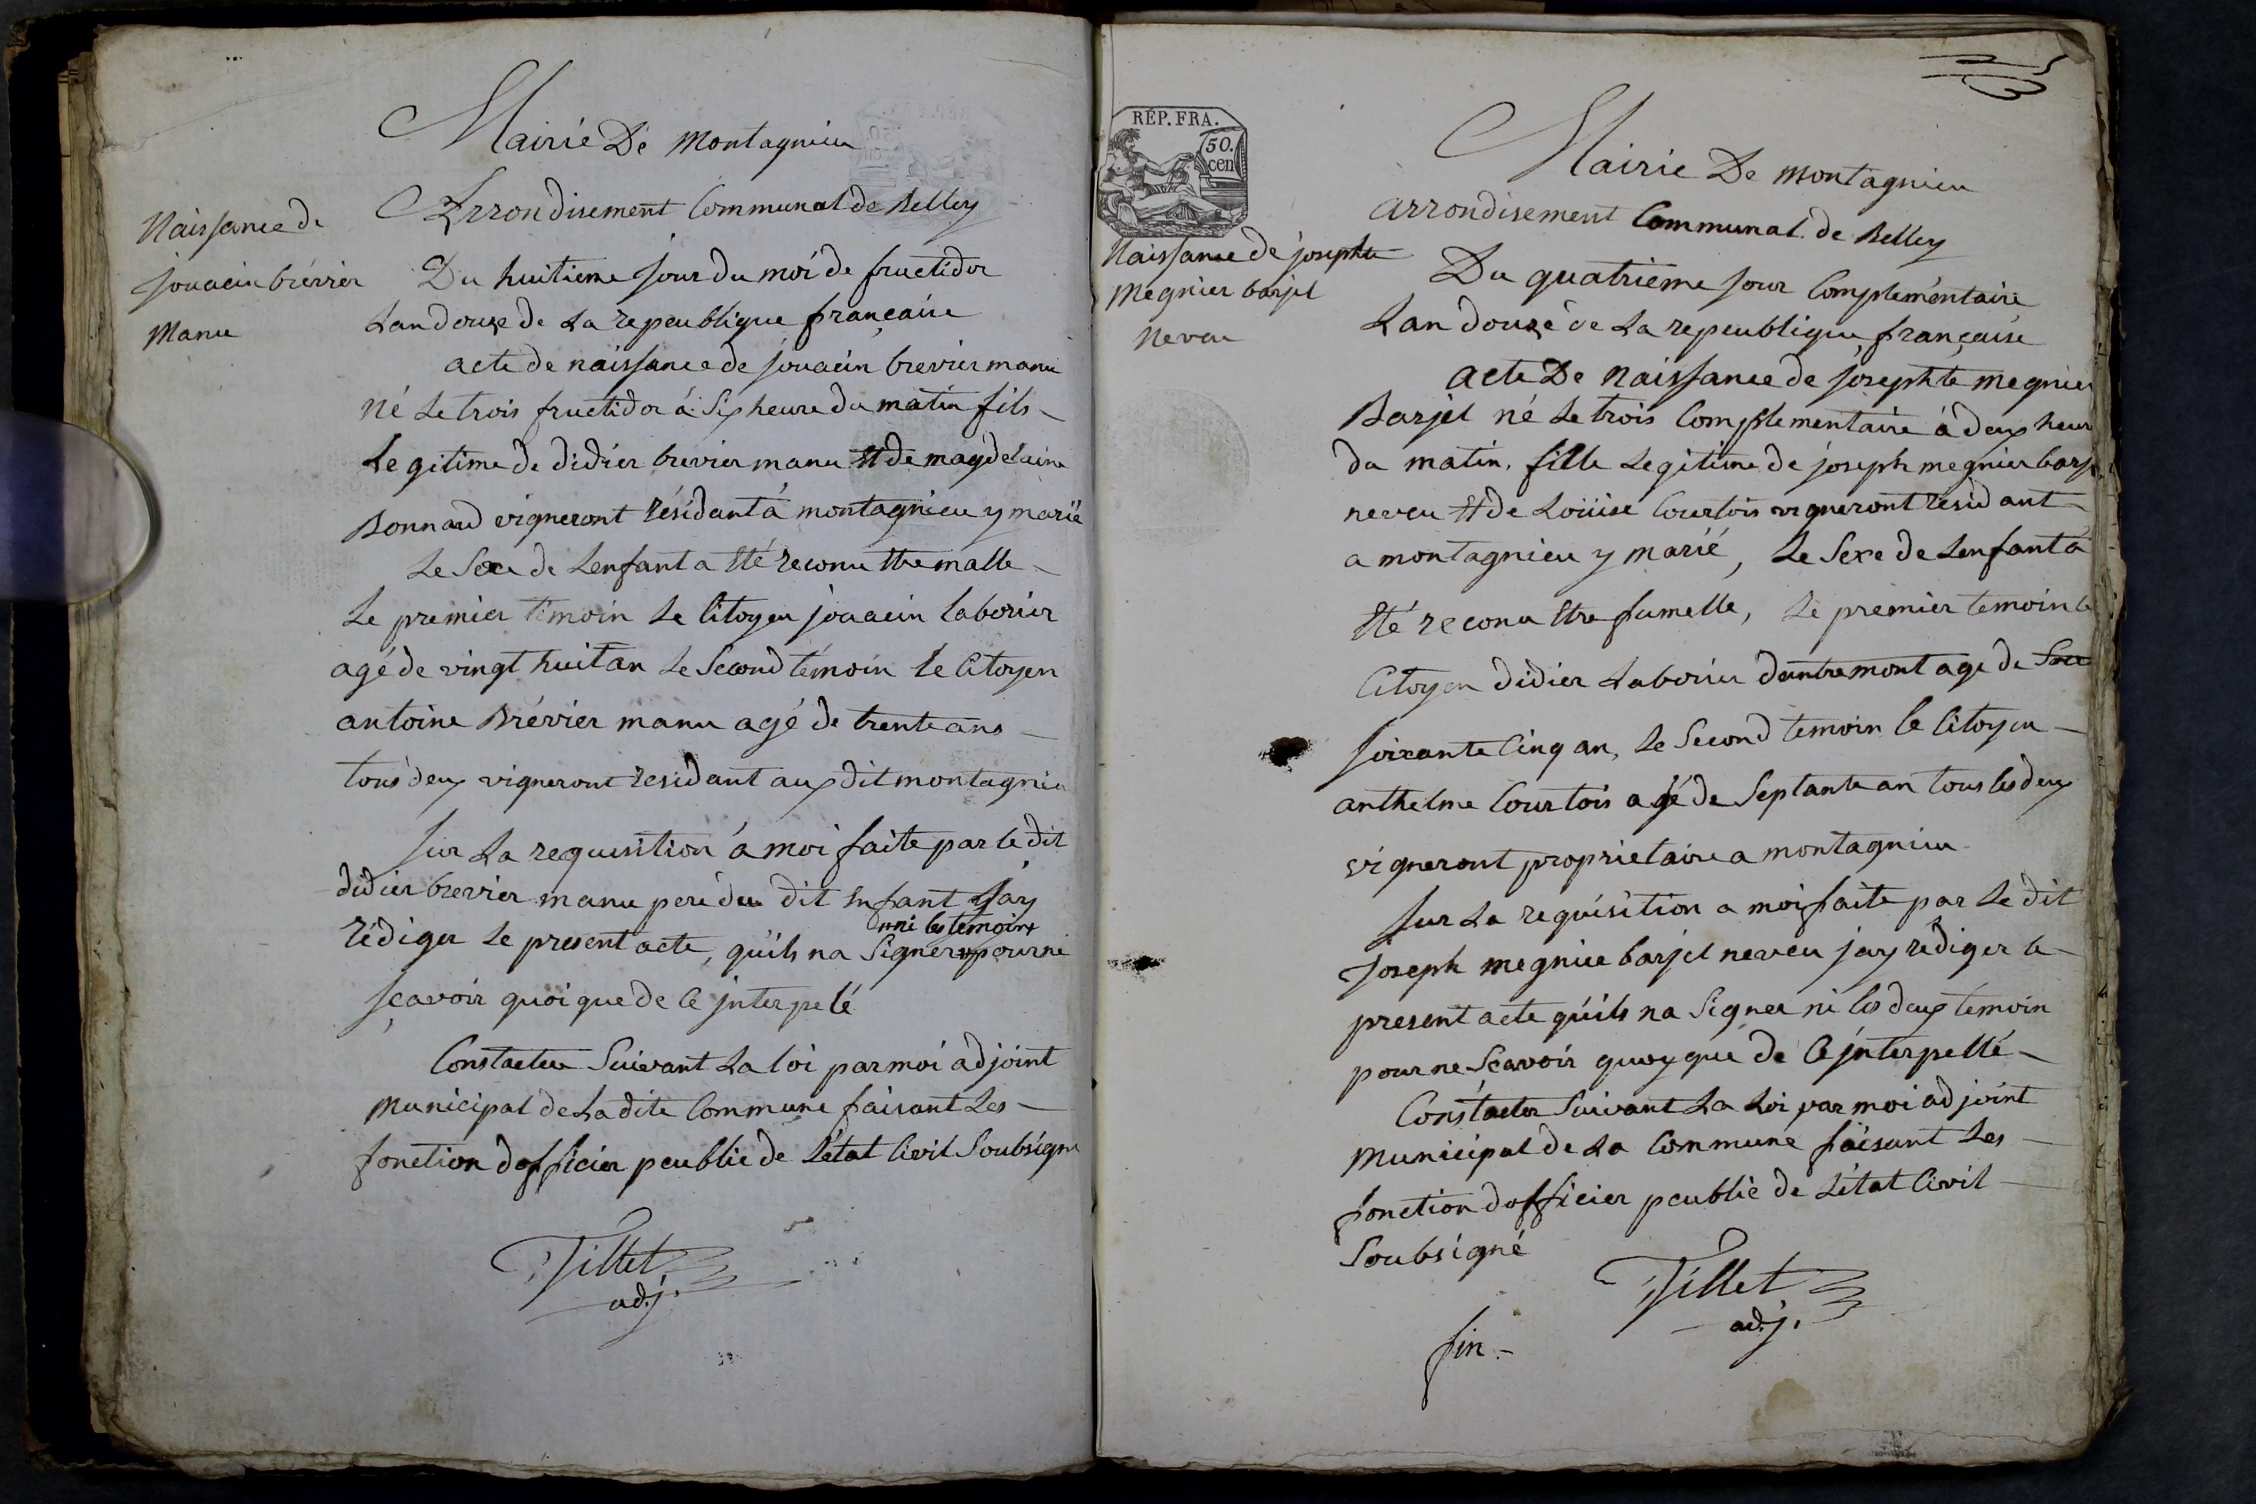 Mairie De Montagnieu
Arrondisement Communal de Belley
Naissance de
jouacin brévier
Manu
Du huitieme jour du moi de fructidor
Lan douze de La repeublique française
acte de naissance de jouacin brevier manu
né Le trois fructidor á Six heure du matin fils
Legitime de didier brevier manu Et de magdelaine
Bonnard vigneront résidant á montagnieu y marié
Le Sexe de Lenfant a Eté reconu Etre malle
Le premier témoin Le Citoyen jouacin laborier
agé de vingt huit an Le Second témoin le Citoyen
antoine Brévier manu agé de trente ans
tous deux vigneront residant aux dit montagnieu
Sur La requisition á moi faite par le dit
didier brevier manu peré du dit Enfant Jáy
rédiger Le present acte, quils na Signer ni les temoint pour ne
sçavoir quoi que de Ce jnterpelé
Constacter Suivant La loi par moi adjoint
Municipal de Ladite Commune faisant Les
fonction dofficier peublic de Létat Civil Soubsigné
Tillet
adj.
RÉP. FRA.
50.
cen
Mairie De Montagnieu
arrondisement Communal de Belley
Naissance de josephte
Megnier barjel
Neveu
Du quatrieme jour Complementaire
Lan douze de La repeublique française
acte De Naissance de josephte megnier
Barjel né Le trois Complementaire á deux heur
du matin, fille Legitime de joseph megnier barj
neveu Et de Loüise Courtois vigneront résidant
a montagnieu y marié, Le Sexe de Lenfant á
Eté reconu Etre fumelle, Le premier temoin le
Citoyen didier Laborier dentremont age de
soixante Cinq an, Le Second temoin le Citoyen
anthelme Courtois agé de Septante an tous les deux
vigneront proprietaire a montagnieu
Sur La requisition a moi faite par Le dit
Joseph megnier barjel neveu jay rédiger le
present acte quils na Signer ni les deux témoin
pour ne Scavoir quoy que de Ce jnterpellé
Constacter Suivant La Loi par moi adjoint
Municipal de La Commune faisant Les
fonction dofficier peublic de Létat Civil
Soubsigné
Tillet
adj.
fin